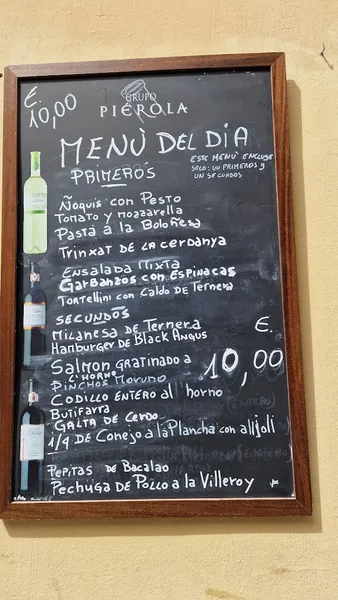 €.
10,00
GRUPO
PIÉROLA
MENÙ DEL DIA
PRIMEROS
ESTE MENÙ ENCLUYE
SOLO: UN PRIMEROS y
UN SECUNDOS
Ñoquis con Pesto
Tomato y mozzarella
Pasta à la Boloñesa
Trinxat DE LA cerdanya
Ensalada Mixta
Garbanzos con Espinacas
Tortellini con Caldo de Ternera
SECUNDOS
Milanesa de Ternera
Hamburger de Black Angus
€.
10,00
Salmon gratinado a
L'HORNO
Pinchos Moruno
Codillo entero al horno
Butifarra
Galta de Cerdo
1/4 DE Conejo a la Plancha con allioli
Pepitas de Bacalao
Pechuga de Pollo a la Villeroy